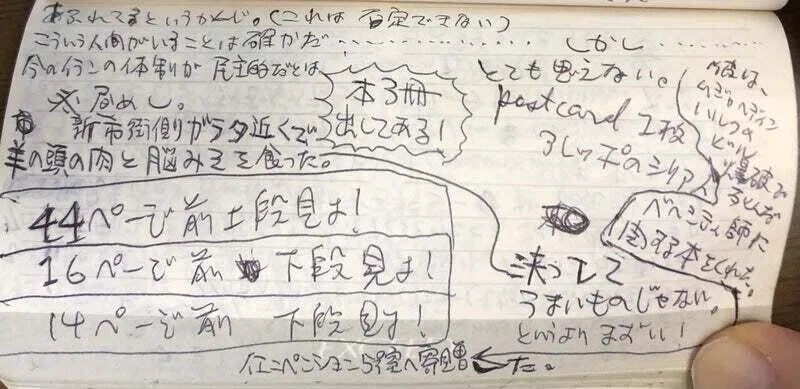 あふれてるというかんじ。(これは否定できない)
こういう人間がいることは確かだ………… しかし…………
今のイランの体制が民主的だとは
とても思えない。
昼めし。
新市街側ガラタ近くで
羊の頭の肉と脳みそを食った。
本3冊
出してある!
postcard 1枚
彼は、
ビル
爆破で
ベヘシティ師に
関する本をくれた。
決して
うまいものじゃない。
というよりまずい!
44ページ前上段見よ!
16ページ前 下段見よ!
14ページ前 下段見よ!
へ寄贈 た。